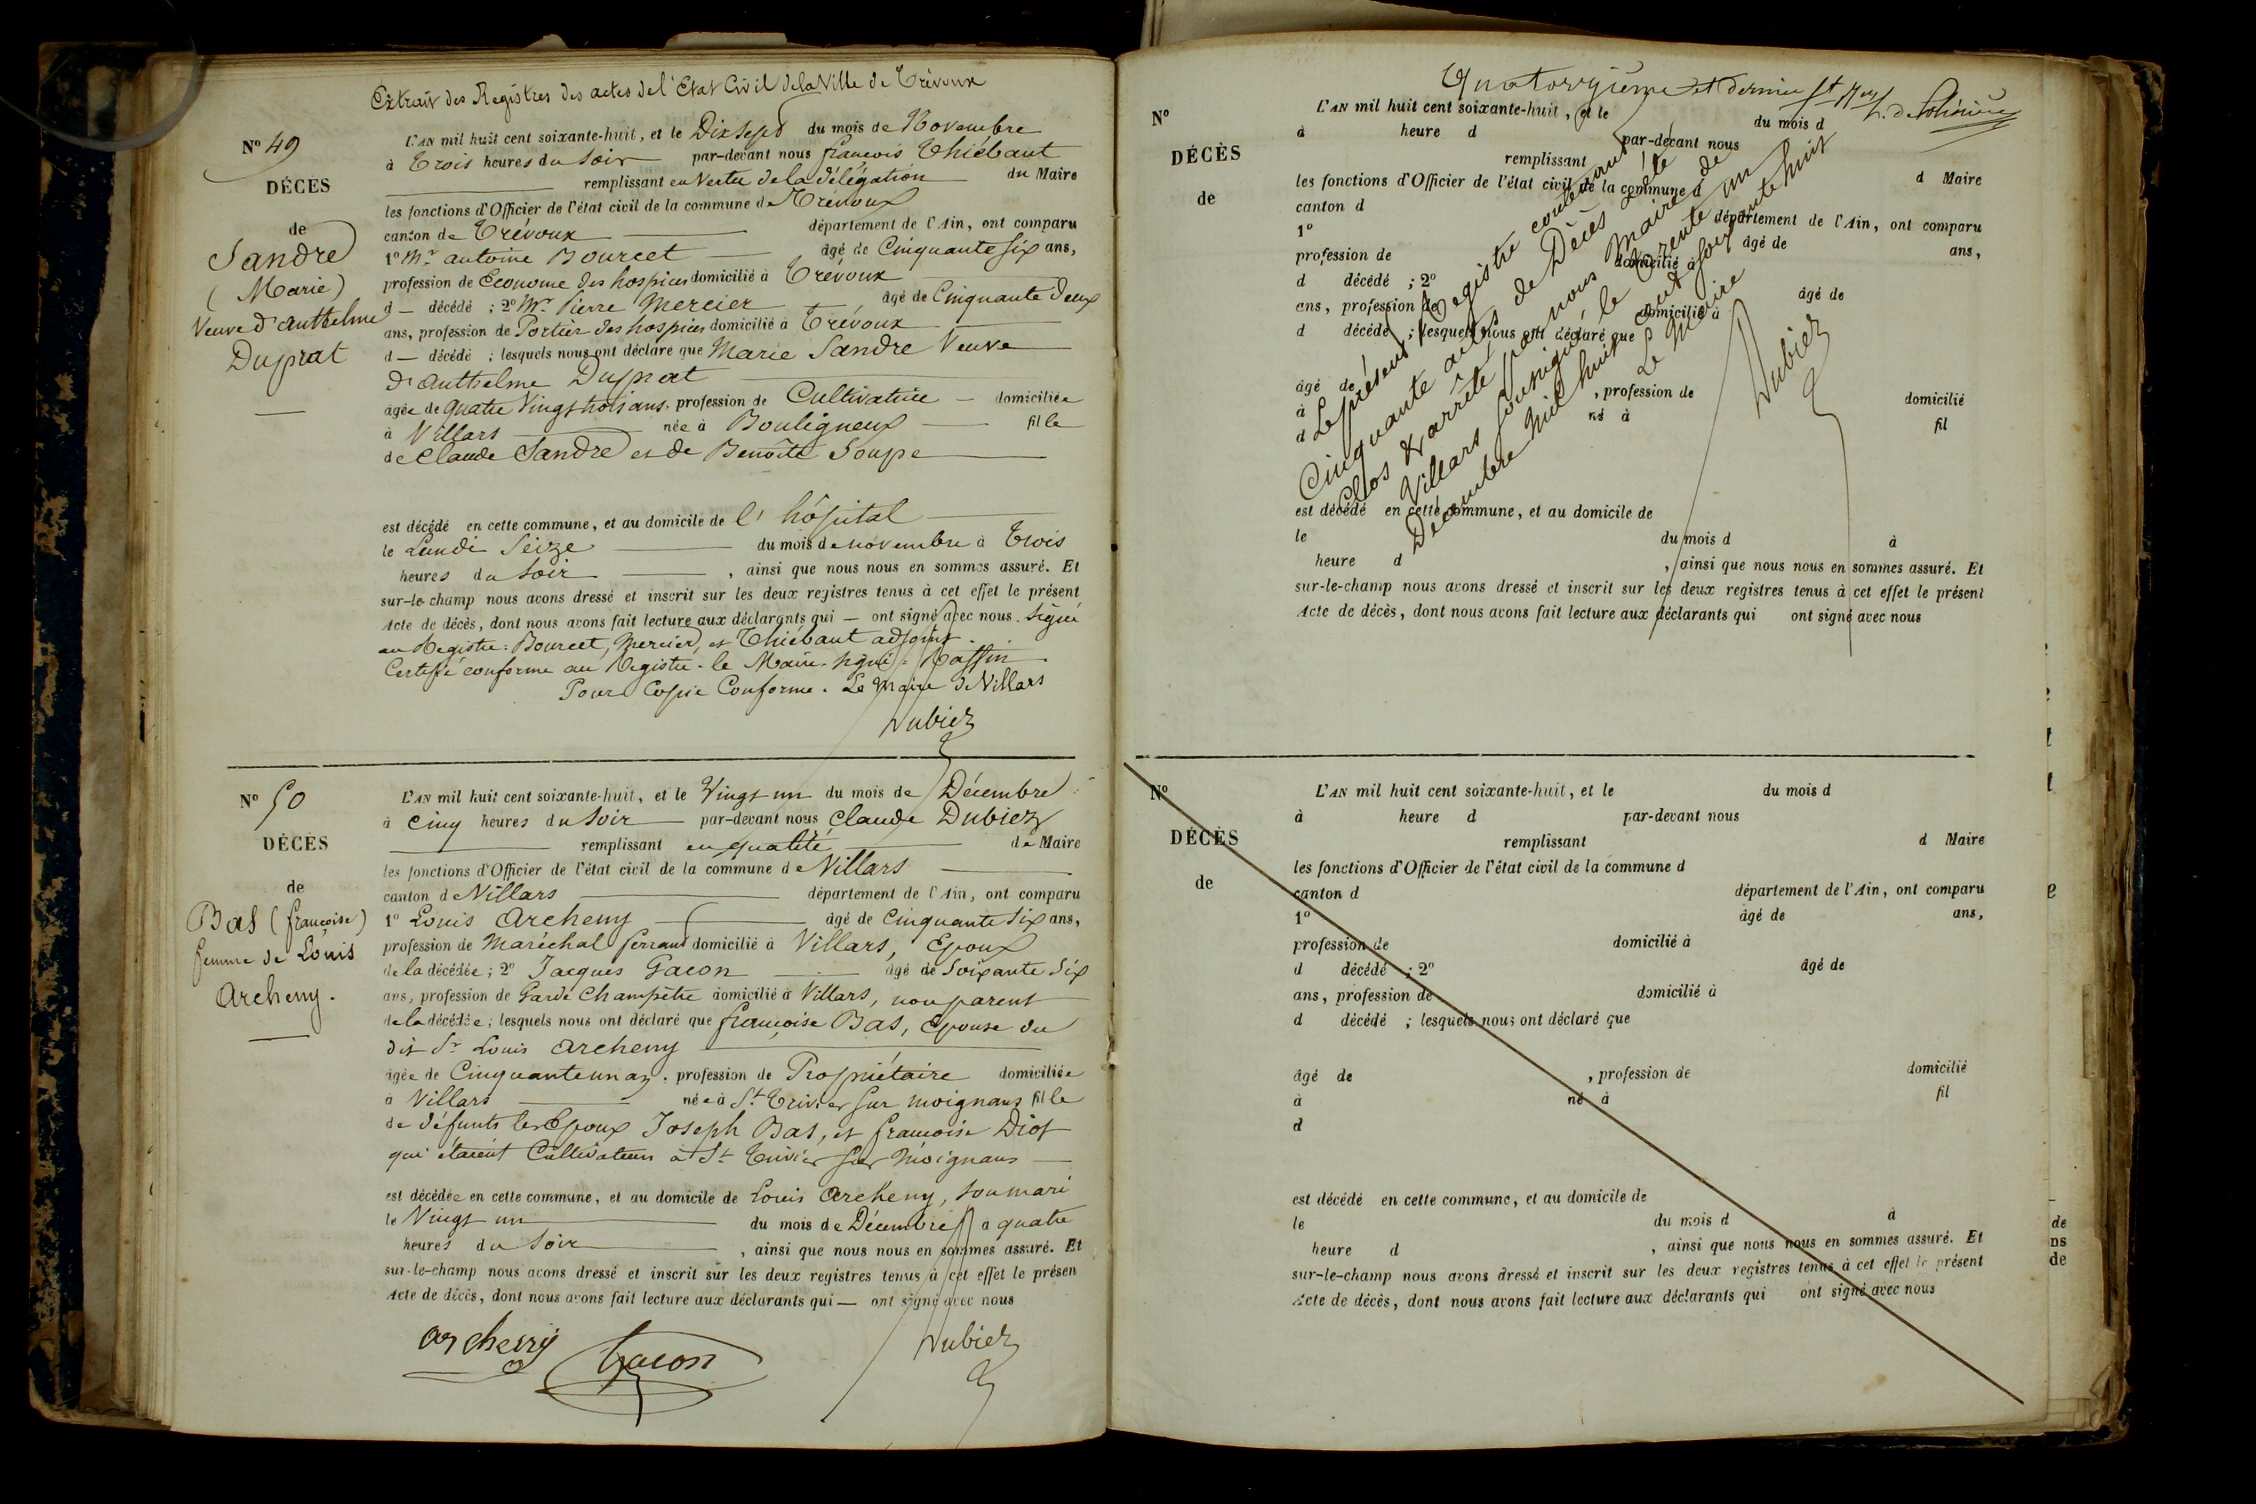 Extrait des Registres des actes de l'Etat Civil de la Ville de Trévoux
N° 49
DÉCÈS
de
Sandre
(Marie)
Veuve d'Anthelme
Duprat
L'AN mil huit cent soixante-huit, et le Dix Sept du mois de Novembre
à Trois heures du Soir par-devant nous françois Thiébaut
remplissant en Vertu de la délégation du Maire
les fonctions d'Officier de l'état civil de la commune de Trévoux
canton de Trévoux département de l'Ain, ont comparu
1° Mr antoine Bourcet âgé de Cinquante six ans,
profession de Econome des hospices domicilié à Trévoux
d décédé ; 2° Mr Pierre Mercier âgé de Cinquante deux
ans, profession de Portier des hospices domicilié à Trévoux
d décédé ; lesquels nous ont déclaré que Marie Sandre Veuve
d'Anthelme Duprat
âgée de quatre Vingt trois ans, profession de Cultivatrice domiciliée
à Villars née à Bouligneux fille
de Claude Sandre et de Benoîte Soupe
est décédé en cette commune, et au domicile de l'hôpital
le Lundi Seize du mois de novembre à Trois
heures du Soir, ainsi que nous nous en sommes assuré. Et
sur-le-champ nous avons dressé et inscrit sur les deux registres tenus à cet effet le présent
Acte de décès, dont nous avons fait lecture aux déclarants qui ont signé avec nous. Signé
au Registre : Bourcet, Mercier, et Thiébaut adjoint.
Certifié conforme au Registre. le Maire. signé : Raffin
Pour Copie Conforme. Le Maire de Villars
Dubiez
N° 50
DÉCÈS
de
Bas (françoise)
femme de Louis
Archeny.
L'AN mil huit cent soixante-huit, et le Vingt un du mois de Décembre
à Cinq heures du Soir par-devant nous, Claude Dubiez
remplissant en qualité de Maire
les fonctions d'Officier de l'état civil de la commune de Villars
canton de Villars département de l'Ain, ont comparu
1° Louis Archeny âgé de Cinquante six ans,
profession de Maréchal ferrant domicilié à Villars, Epoux
de la décédée ; 2° Jacques Gacon âgé de Soixante Six
ans, profession de Garde Champêtre domicilié à Villars, non parent
de la décédée ; lesquels nous ont déclaré que françoise Bas, Epouse du
dit Sr Louis Archeny
âgée de Cinquante un an, profession de Propriétaire domiciliée
à Villars née à St Trivier sur moignans fille
de défunts les Epoux Joseph Bas, et françoise Diot
qui étaient Cultivateurs à St Trivier sur Moignans
est décédée en cette commune, et au domicile de Louis Archeny, son mari
le Vingt un du mois de Décembre à quatre
heures du Soir, ainsi que nous nous en sommes assuré. Et
sur-le-champ nous avons dressé et inscrit sur les deux registres tenus à cet effet le présen
Acte de décès, dont nous avons fait lecture aux déclarants qui ont signé avec nous
archeny Gacon Dubiez
Quatorzième et dernier
N°
DÉCÈS
de
L'AN mil huit cent soixante-huit, et le du mois d
à heure d par-devant nous
remplissant d Maire
les fonctions d'Officier de l'état civil de la commune d
canton d département de l'Ain, ont comparu
1° âgé de ans,
profession de domicilié à
d décédé ; 2° âgé de
ans, profession de domicilié à
d décédé ; lesquels nous ont déclaré que
âgé de , profession de domicilié
à né à fil
d
est décédé en cette commune, et au domicile de
le du mois d à
heure d , ainsi que nous nous en sommes assuré. Et
sur-le-champ nous avons dressé et inscrit sur les deux registres tenus à cet effet le présent
Acte de décès, dont nous avons fait lecture aux déclarants qui ont signé avec nous
Le présent Registre contenant
Cinquante actes de Décès a été
Clos & arrêté par nous Maire de
Villars soussigné le Trente un
Décembre Mil huit cent soixante huit
Le Maire
Dubiez
N°
DÉCÈS
de
L'AN mil huit cent soixante-huit, et le du mois d
à heure d par-devant nous
remplissant d Maire
les fonctions d'Officier de l'état civil de la commune d
canton d département de l'Ain, ont comparu
1° âgé de ans,
profession de domicilié à
d décédé ; 2° âgé de
ans, profession de domicilié à
d décédé ; lesquels nous ont déclaré que
âgé de , profession de domicilié
à né à fil
d
est décédé en cette commune, et au domicile de
le du mois d à
heure d , ainsi que nous nous en sommes assuré. Et
sur-le-champ nous avons dressé et inscrit sur les deux registres tenus à cet effet le présent
Acte de décès, dont nous avons fait lecture aux déclarants qui ont signé avec nous
de
ns
de